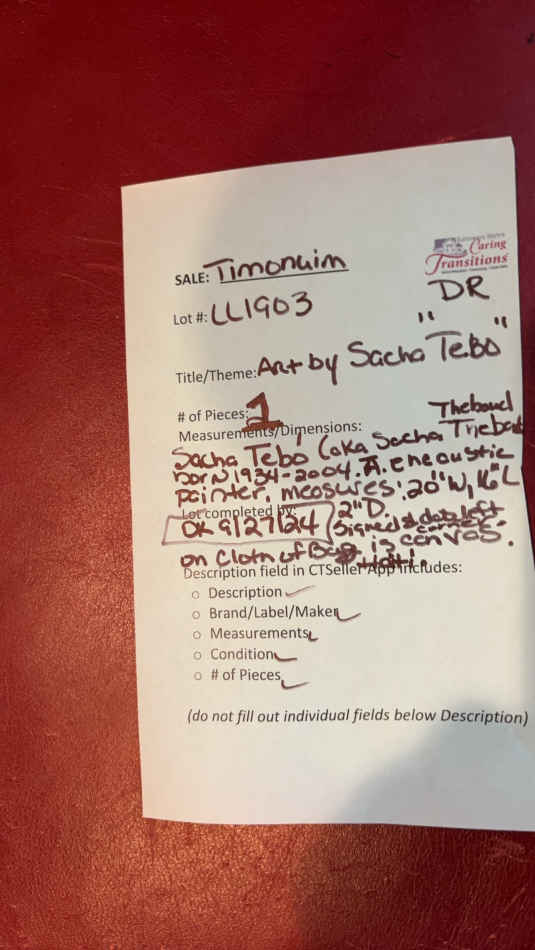 Caring
Transitions
SALE: Timonuim
Lot #: LL1903
DR
Title/Theme: Art by Sacha "Tebo"
# of Pieces: 1
Measurements/Dimensions:
Sacha Tebó (aka Sacha
born 1934-2004. A. encaustic
painter. measures: 20"W, 16"L
2"D.
Lot completed by:
OK 9/27/24
Signed & date left
on Cloth of Bag is canvas.
Description field in CTSeller App includes:
○ Description
○ Brand/Label/Maker
○ Measurements
○ Condition
○ # of Pieces
(do not fill out individual fields below Description)